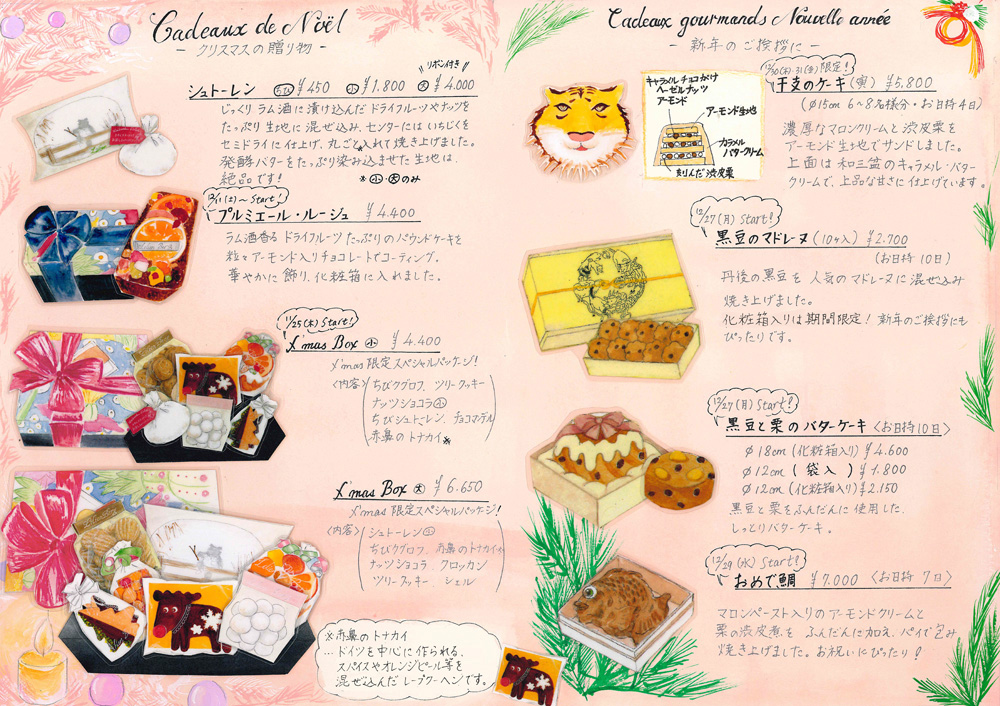 Cadeaux de Noël
- クリスマスの贈り物 -
リボン付き
シュトーレン ちび ¥450 小 ¥1.800 大 ¥4.000
じっくり ラム酒に漬け込んだ ドライフルーツやナッツを
たっぷり 生地に 混ぜ込み、センターには いちじくを
セミドライに仕上げ、丸ごと入れて 焼き上げました。
発酵バターをたっぷり染み込ませた 生地は、
絶品です!
※小・大のみ
12/11(土)〜 Start!
プルミエール・ルージュ ¥4.400
ラム酒香る ドライフルーツ たっぷりの パウンドケーキを
粒々アーモンド入りチョコレートでコーティング。
華やかに飾り、化粧箱に入れました。
11/25(木) Start!
X'mas Box 小 ¥4.400
X'mas 限定スペシャルパッケージ!
〈内容〉
ちびクグロフ、ツリークッキー
ナッツショコラ小
ちびシュトーレン、チョコマンデル
赤鼻のトナカイ※
X'mas Box 大 ¥6.650
X'mas 限定スペシャルパッケージ!
〈内容〉
シュトーレン小
ちびクグロフ、赤鼻のトナカイ※
ナッツショコラ クロッカン
ツリークッキー、シェル
※赤鼻のトナカイ
…ドイツを中心に作られる、
スパイスやオレンジピール等を
混ぜ込んだ レープクーヘンです。
Cadeaux gourmands Nouvelle année
- 新年のご挨拶に -
12/30(木)・31(金)限定!
干支のケーキ(寅) ¥5.800
(φ15cm 6〜8名様分・お日持4日)
キャラメルチョコがけ
ヘーゼルナッツ
アーモンド
アーモンド生地
カラメル
バタークリーム
刻んだ渋皮栗
濃厚なマロンクリームと渋皮栗を
アーモンド生地でサンドしました。
上面は和三盆のキャラメル・バター
クリームで、上品な甘さに仕上げています。
12/27(月) Start!
黒豆のマドレーヌ(10ヶ入) ¥2.700
(お日持10日)
丹後の黒豆を 人気のマドレーヌに混ぜ込み
焼き上げました。
化粧箱入りは期間限定! 新年のご挨拶にも
ぴったりです。
12/27(月) Start!
黒豆と栗のバターケーキ〈お日持10日〉
φ18cm(化粧箱入り) ¥4.600
φ12cm(袋入) ¥1.800
φ12cm(化粧箱入り) ¥2.150
黒豆と栗をふんだんに使用した、
しっとりバターケーキ。
12/29(水) Start!
おめで鯛 ¥7.000〈お日持7日〉
マロンペースト入りのアーモンドクリームと
栗の渋皮煮を ふんだんに加え、パイで包み
焼き上げました。お祝いにぴったり!